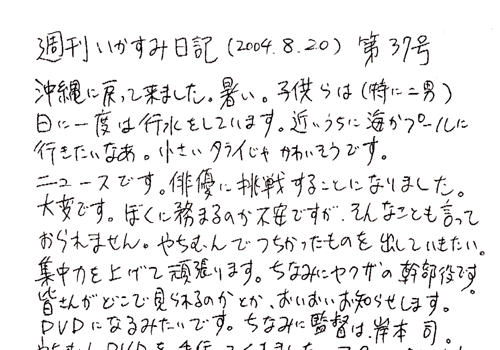 週刊いかすみ日記(2004.8.20) 第37号
沖縄に戻って来ました。暑い。子供らは(特に二男)
日に一度は行水をしています。近いうちに海かプールに
行きたいなあ。小さいタライじゃかわいそうです。
ニュースです。俳優に挑戦することになりました。
大変です。ぼくに務まるのか不安ですが、そんなことも言って
おられません。やちむんでつちかったものを出していきたい。
集中力を上げて頑張ります。ちなみにヤクザの幹部役です
皆さんがどこで見られるのかとか、おいおいお知らせします。
DVDになるみたいです。ちなみに監督は、岸本 司。